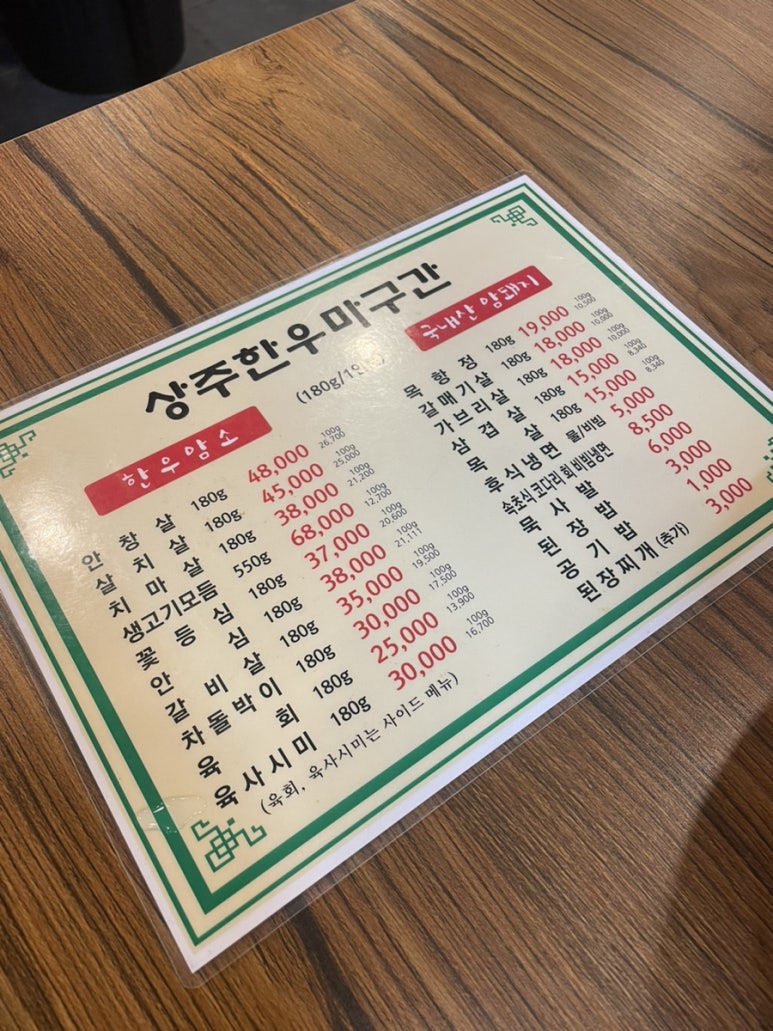 상주한우마구간
(180g/1인)
한우암소
안창살 180g 48,000 100g 26,700
살치살 180g 45,000 100g 25,000
치마살 180g 38,000 100g 21,200
생고기모듬 550g 68,000 100g 12,700
꽃등심 180g 37,000 100g 20,600
안심 180g 38,000 100g 21,111
갈비살 180g 35,000 100g 19,500
차돌박이 180g 30,000 100g 17,500
육회 180g 25,000 100g 13,900
육사시미 180g 30,000 100g 16,700
(육회, 육사시미는 사이드 메뉴)
국내산암돼지
목항정 180g 19,000 100g 10,500
갈매기살 180g 18,000 100g 10,000
가브리살 180g 18,000 100g 10,000
삼겹살 180g 15,000 100g 8,340
목살 180g 15,000 100g 8,340
후식냉면 물/비빔 5,000
속초식 코다리 회 비빔냉면 8,500
묵사발 6,000
된장밥 3,000
공기밥 1,000
된장찌개 (추가) 3,000